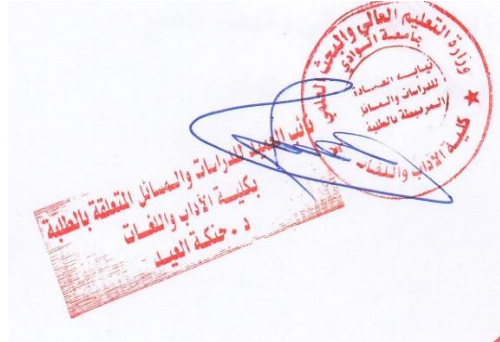 وزارة التعليم العالي والبحث العلمي
جامعة الوادي
نيابة العمادة
للدراسات والمسائل
المرتبطة بالطلبة
كلية الآداب واللغات
نائب العميد للدراسات والمسائل المتعلقة بالطلبة
بكليـة الآداب واللغـات
د. حنكة العيـد